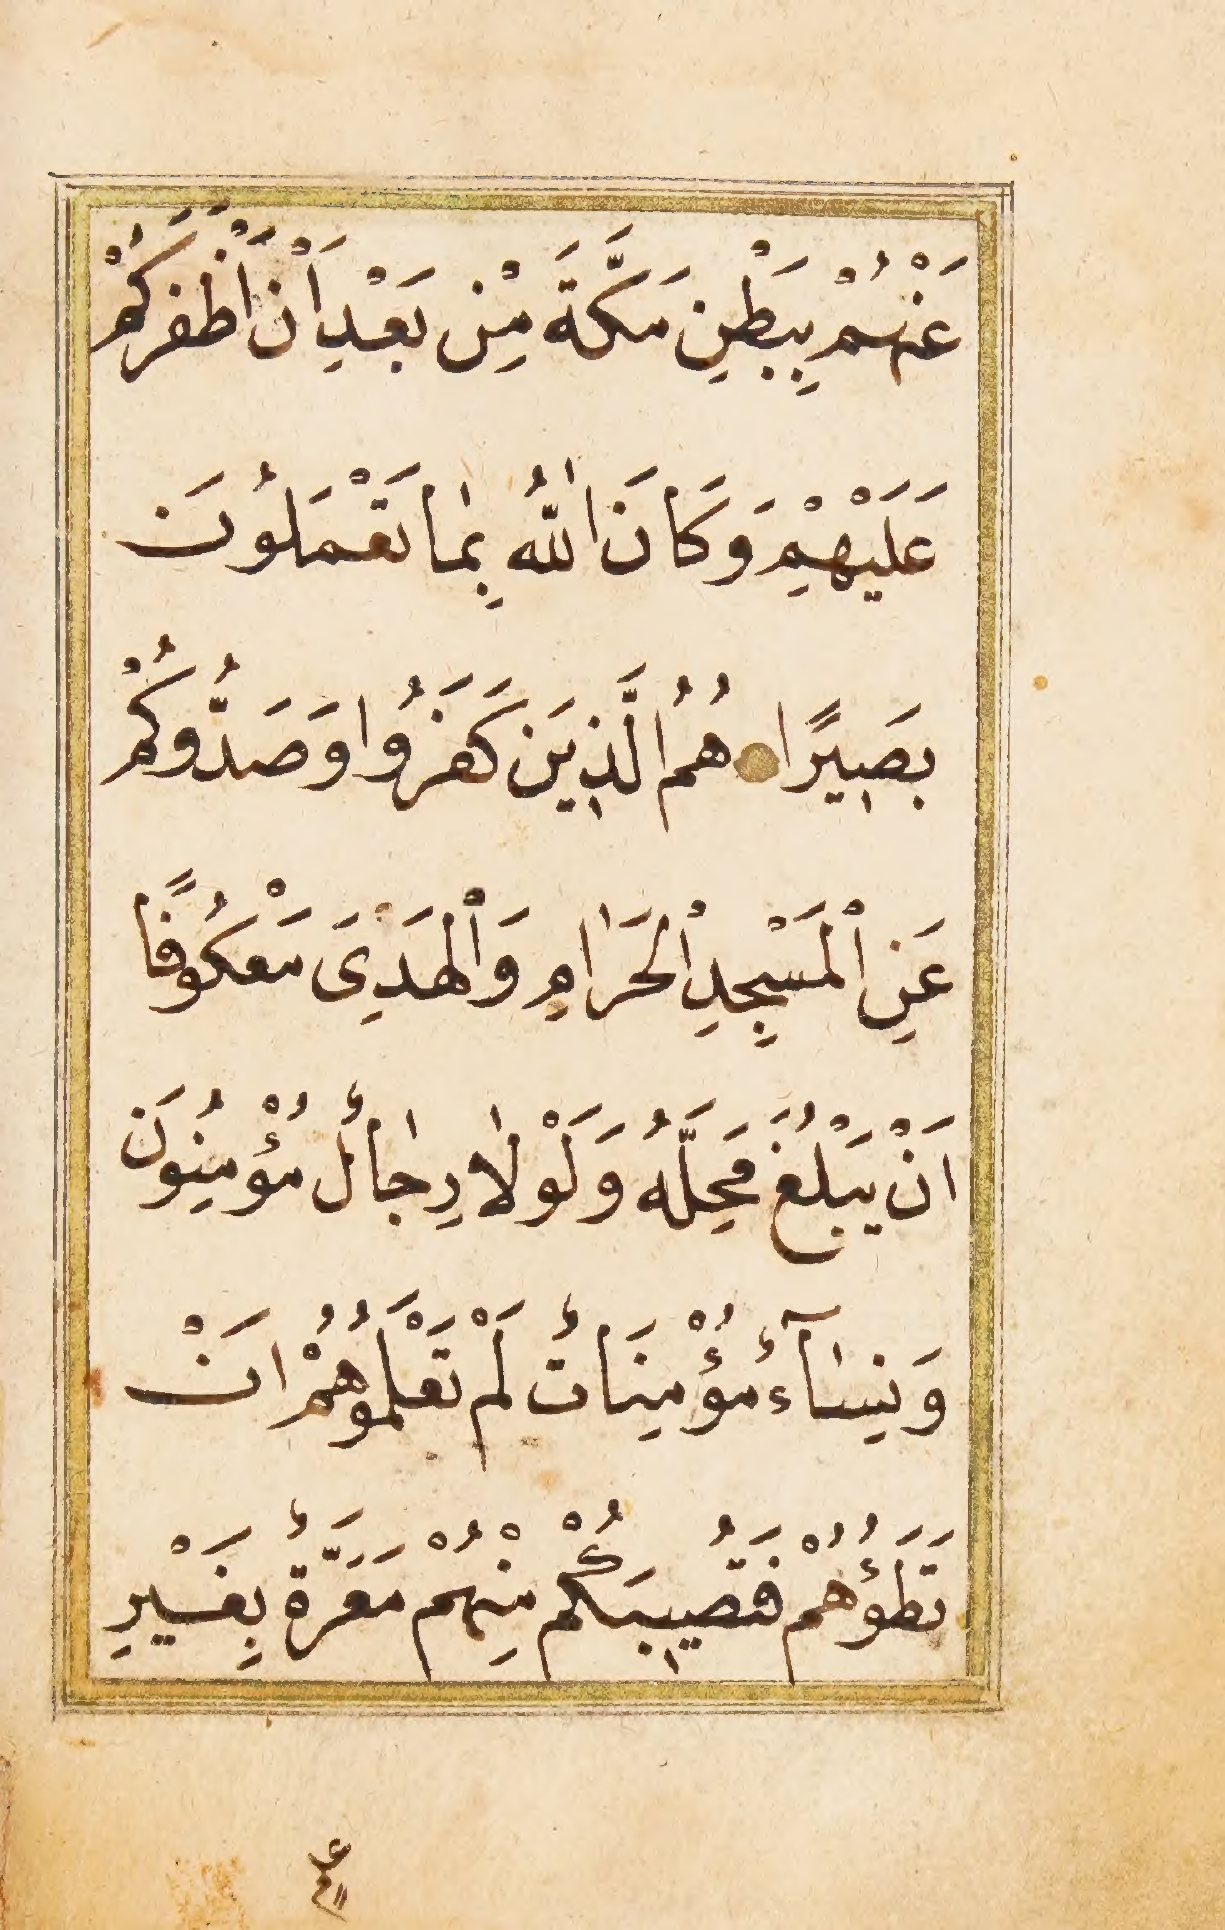 عَنْهُمْ بِبَطْنِ مَكَّةَ مِنْ بَعْدِ اَنْ اَظْفَرَكُمْ
عَلَيْهِمْ وَكَانَ اللّٰهُ بِمَا تَعْمَلُونَ
بَصِيرًا هُمُ الَّذِينَ كَفَرُوا وَصَدُّوكُمْ
عَنِ الْمَسْجِدِ الْحَرَامِ وَالْهَدْىَ مَعْكُوفًا
اَنْ يَبْلُغَ مَحِلَّهُ وَلَوْلَا رِجَالٌ مُؤْمِنُونَ
وَنِسَآءٌ مُؤْمِنَاتٌ لَمْ تَعْلَمُوهُمْ اَنْ
تَطَؤُهُمْ فَتُصِيبَكُمْ مِنْهُمْ مَعَرَّةٌ بِغَيْرِ